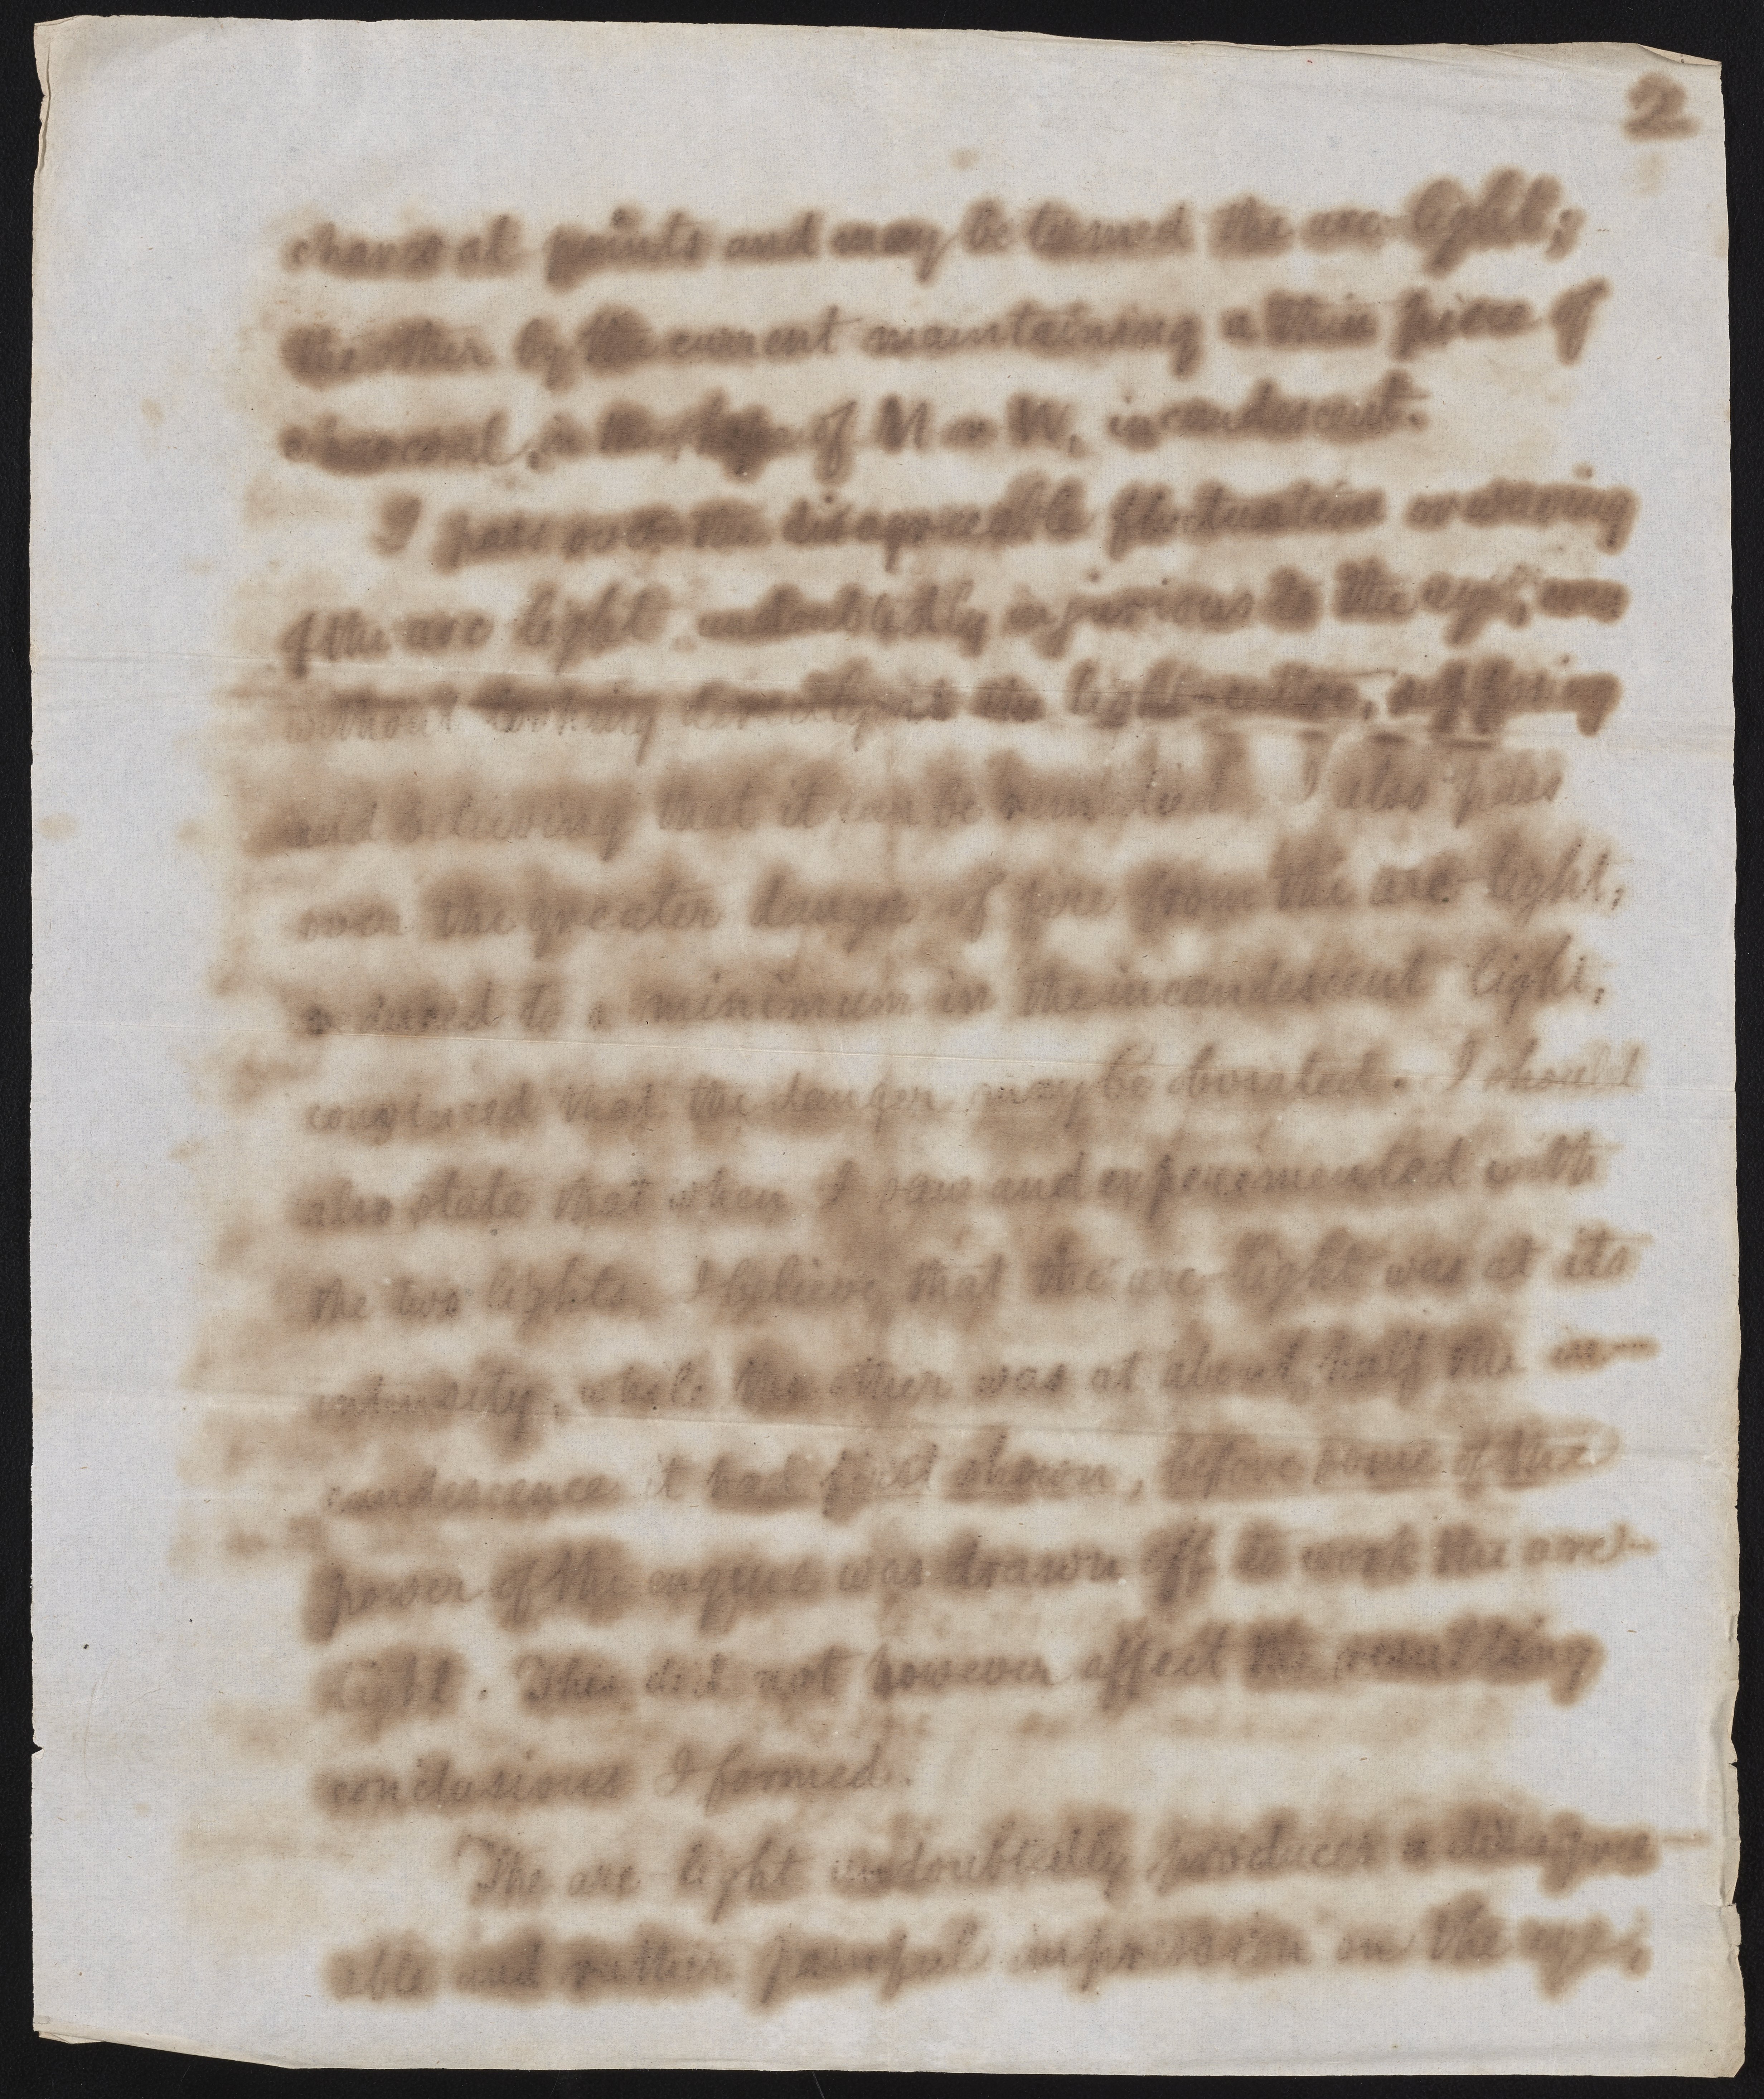 2
charcoal points and may be termed the arc-light;
the other by the current maintaining a thin piece of
charcoal, in the shape of U or W, incandescent.
I pass over the disagreeable fluctuation or waving
of the arc light undoubtedly injurious to the eye, even
without looking directly at the light-centre, suffering
and believing that it can be remedied. I also pass
over the greater danger of fire from the arc-light,
reduced to a minimum in the incandescent light,
convinced that the danger may be obviated. I should
also state that when I saw and experimented with
the two lights, I believe that the arc-light was at its
intensity, while the other was at about half the in-
candescence it had first shown, before some of the
power of the engine was drawn off to work the arc-
light. This did not however affect the resulting
conclusions I formed.
The arc-light undoubtedly produces a disagree-
able and rather painful impression on the eye;